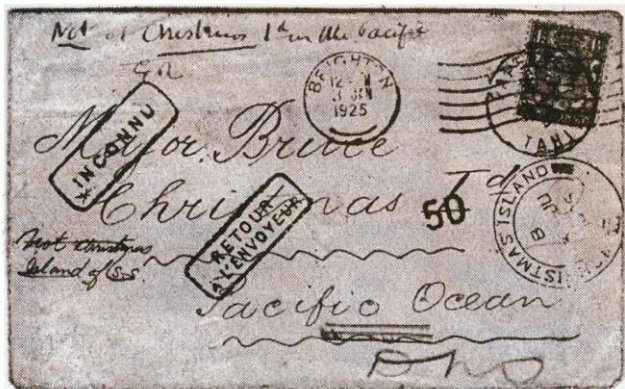 Not at Christmas Id in the Pacific
BRIGHTON
1925
INCONNU
Major Bruce
TAHI
Christmas Id
50
RETOUR
A L'ENVOYEUR
CHRISTMAS ISLAND
Not Christmas
Island of S.S.
Pacific Ocean